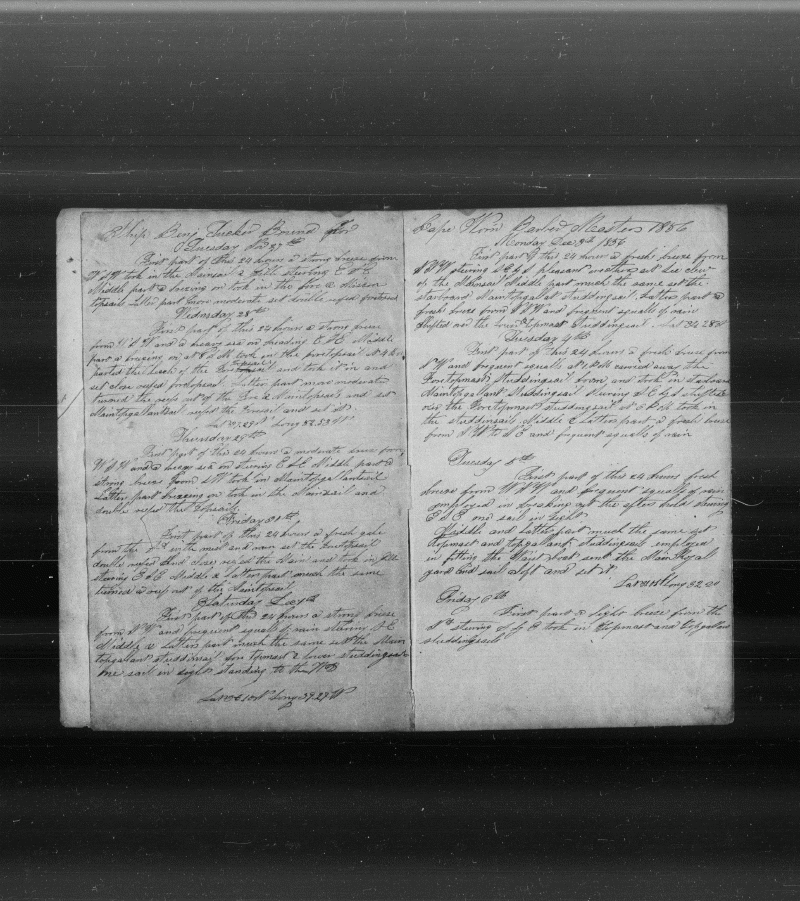 Ship Benj Tucker Bound for
Tuesday 27th
First part of this 24 hours a strong breeze from
took in the Mainsail & steering E S E
Middle part a breezing on took in the fore & mizzen
topsail Latter part more moderate set double reefed foretopsail
Wednesday 28th
First part of this 24 hours a strong breeze
from W S W and a heavy sea on heading E S E Middle
part a breezing on at 8 took in the foretopsail at 4
parted the leech of the Foretopsail and took it in and
set close reefed foretopsail Latter part more moderate
turned the reefs out of the Fore & Maintopsail and set
Maintopgallantsail reefed the Foresail and set it
Lat 37,29 Long 52.53 W
Thursday 29th
First part of this 24 hours a moderate breeze from
W S W and a heavy sea on steering E S E Middle part a
strong breeze from S W took in Maintopgallantsail
Latter part breezing on took in the Mainsail and
double reefed the topsails
Friday 31th
First part of this 24 hours a fresh gale
from the with mist and rain set the Foretopsail
double reefed and close reefed the Main and took in
steering E S E Middle & Latter part much the same
turned a reef out of the Maintopsail
Saturday
First part of the 24 hours a strong breeze
from N W and frequent squalls of rain steering S E
Middle & Latter part much the same set the Main
topgallant studdinsail fore topmast & lower studdingsail
one sail in sight standing to the
Long 39.29 W
Cape Horn Barber Masters 1856
Monday 3d 1856
First part of the 24 hours a fresh breeze from
steering S E by S pleasant weather set the clew
of the Mainsail Middle part much the same set the
starboard Maintopgallant studdingsail Latter part a
fresh breeze from N W and frequent squalls of rain
shifted over the lower & topmast studdingsail Lat 34 28
Tuesday 4th
First part of this 24 hours a fresh breeze from
N W and frequent squalls at 1 P M carried away the
Foretopmast Studdingsail boom and took in
Maintopgallant Studdingsail steering S E by S shifted
over the Foretopmast studdingsail at 6 P M took in
the studdinsails Middle & Latter part a fresh breeze
from S W to S E and frequent squalls of rain
Tuesday 5th
First part of this 24 hours fresh
breeze from W N W and frequent squalls of rain
employed in breaking out the after hold steering
one sail in sight
Middle and latter part much the same set
topmast and topgallant studdingsail employed
in fitting the Waist boat sent the Main Royal
yard and sail aloft and set it
Long 32.20
Friday 6th
First part a light breeze from the
steering S by E took in topmast and topgallant
studdingsails